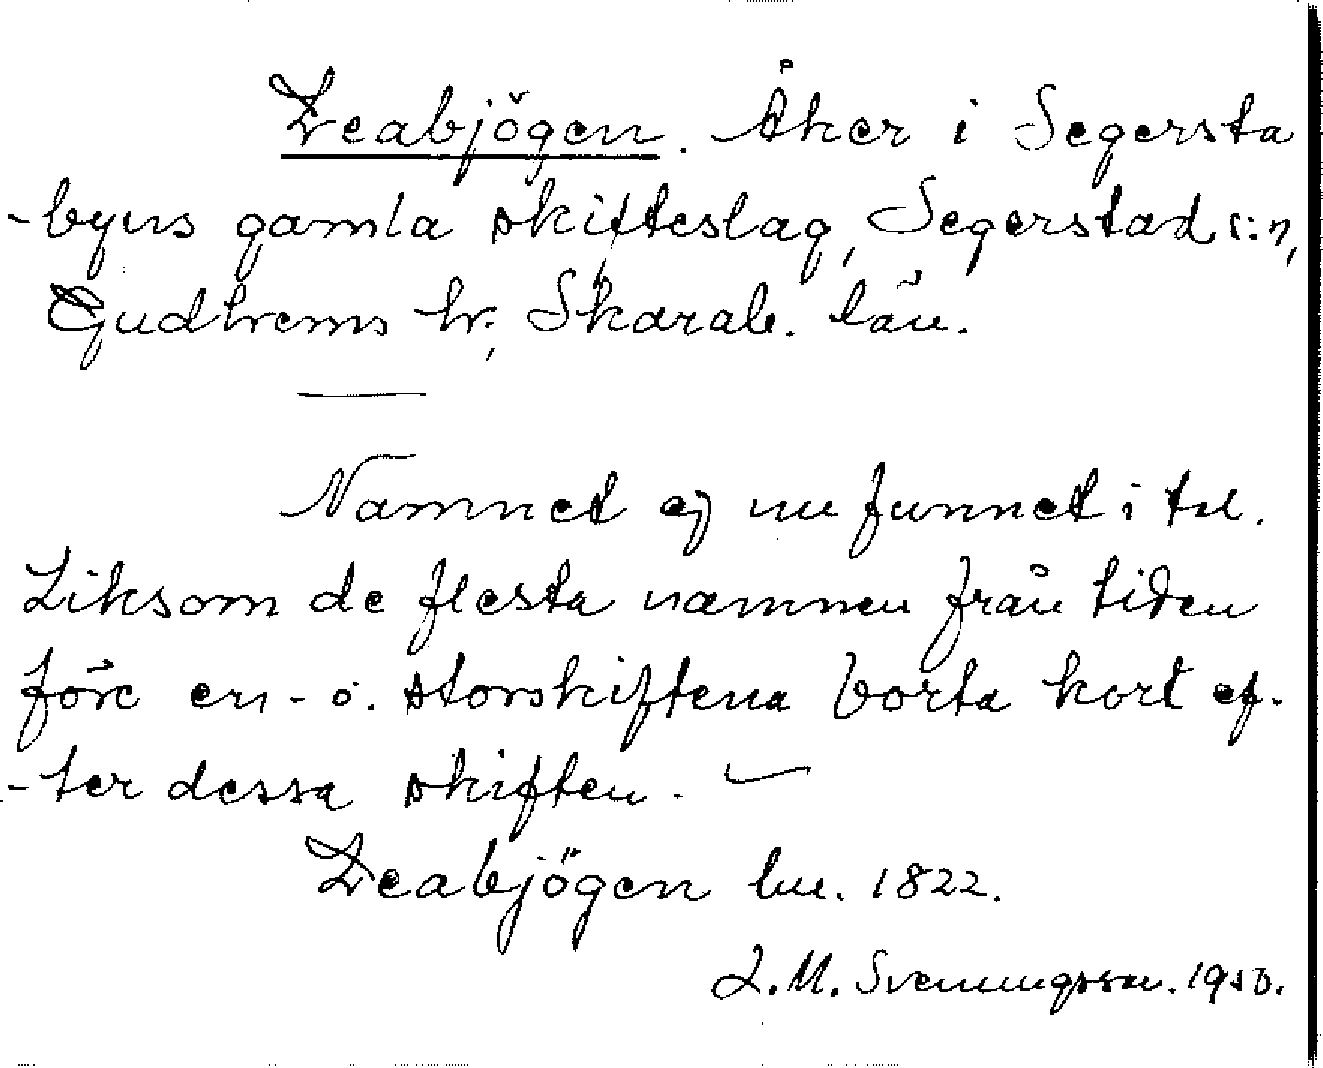 Leabjögen. Åker i Segersta
-byns gamla skifteslag, Segerstad s:n,
Gudhems hr, Skarab. län.
Namnet ej nu funnet i tal.
Liksom de flesta namnen från tiden
före en- o. storskiftena borta kort ef-
-ter dessa skiften.
Leabjögen lm. 1822.
L. M. Svenungsson. 1950.